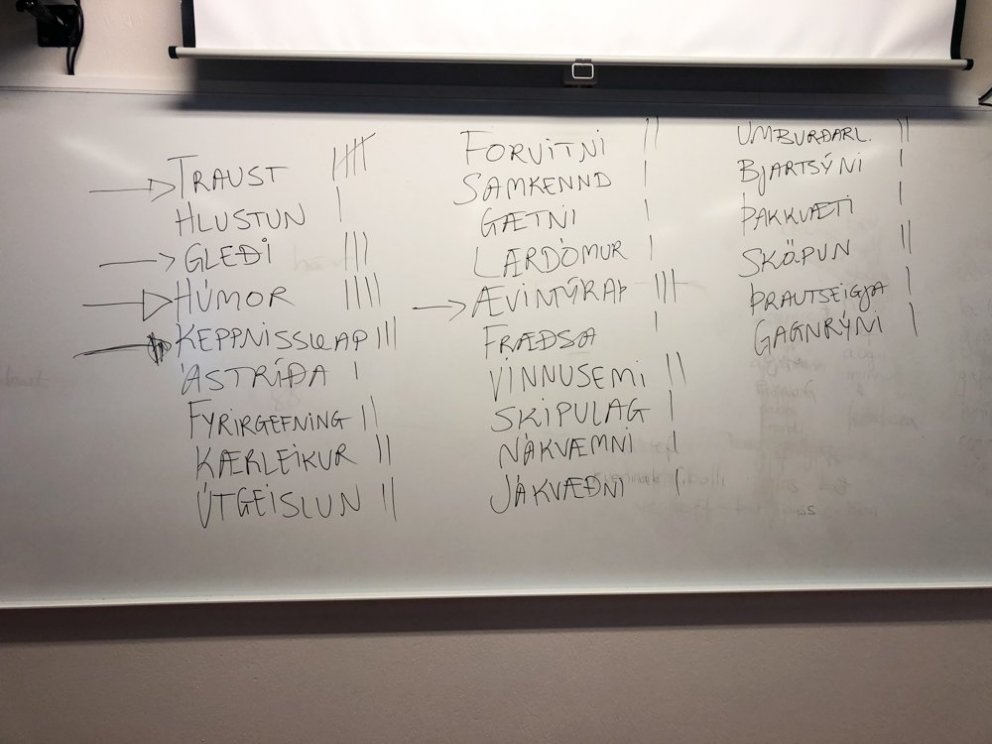 → TRAUST ||||
HLUSTUN |
→ GLEÐI |||
→ HÚMOR ||||
→ KEPPNISSKAP |||
ÁSTRÍÐA |
FYRIRGEFNING ||
KÆRLEIKUR ||
ÚTGEISLUN ||
FORVITNI ||
SAMKENND |
GÆTNI |
LÆRDÓMUR |
→ ÆVINTÝRAÞ |||
FRÆÐSA |
VINNUSEMI ||
SKIPULAG |
NÁKVÆMNI |
JÁKVÆÐNI |
UMBURÐARL. ||
BJARTSÝNI |
ÞAKKVÆTI |
SKÖPUN ||
ÞRAUTSEIGJA |
GAGNRÝNI |